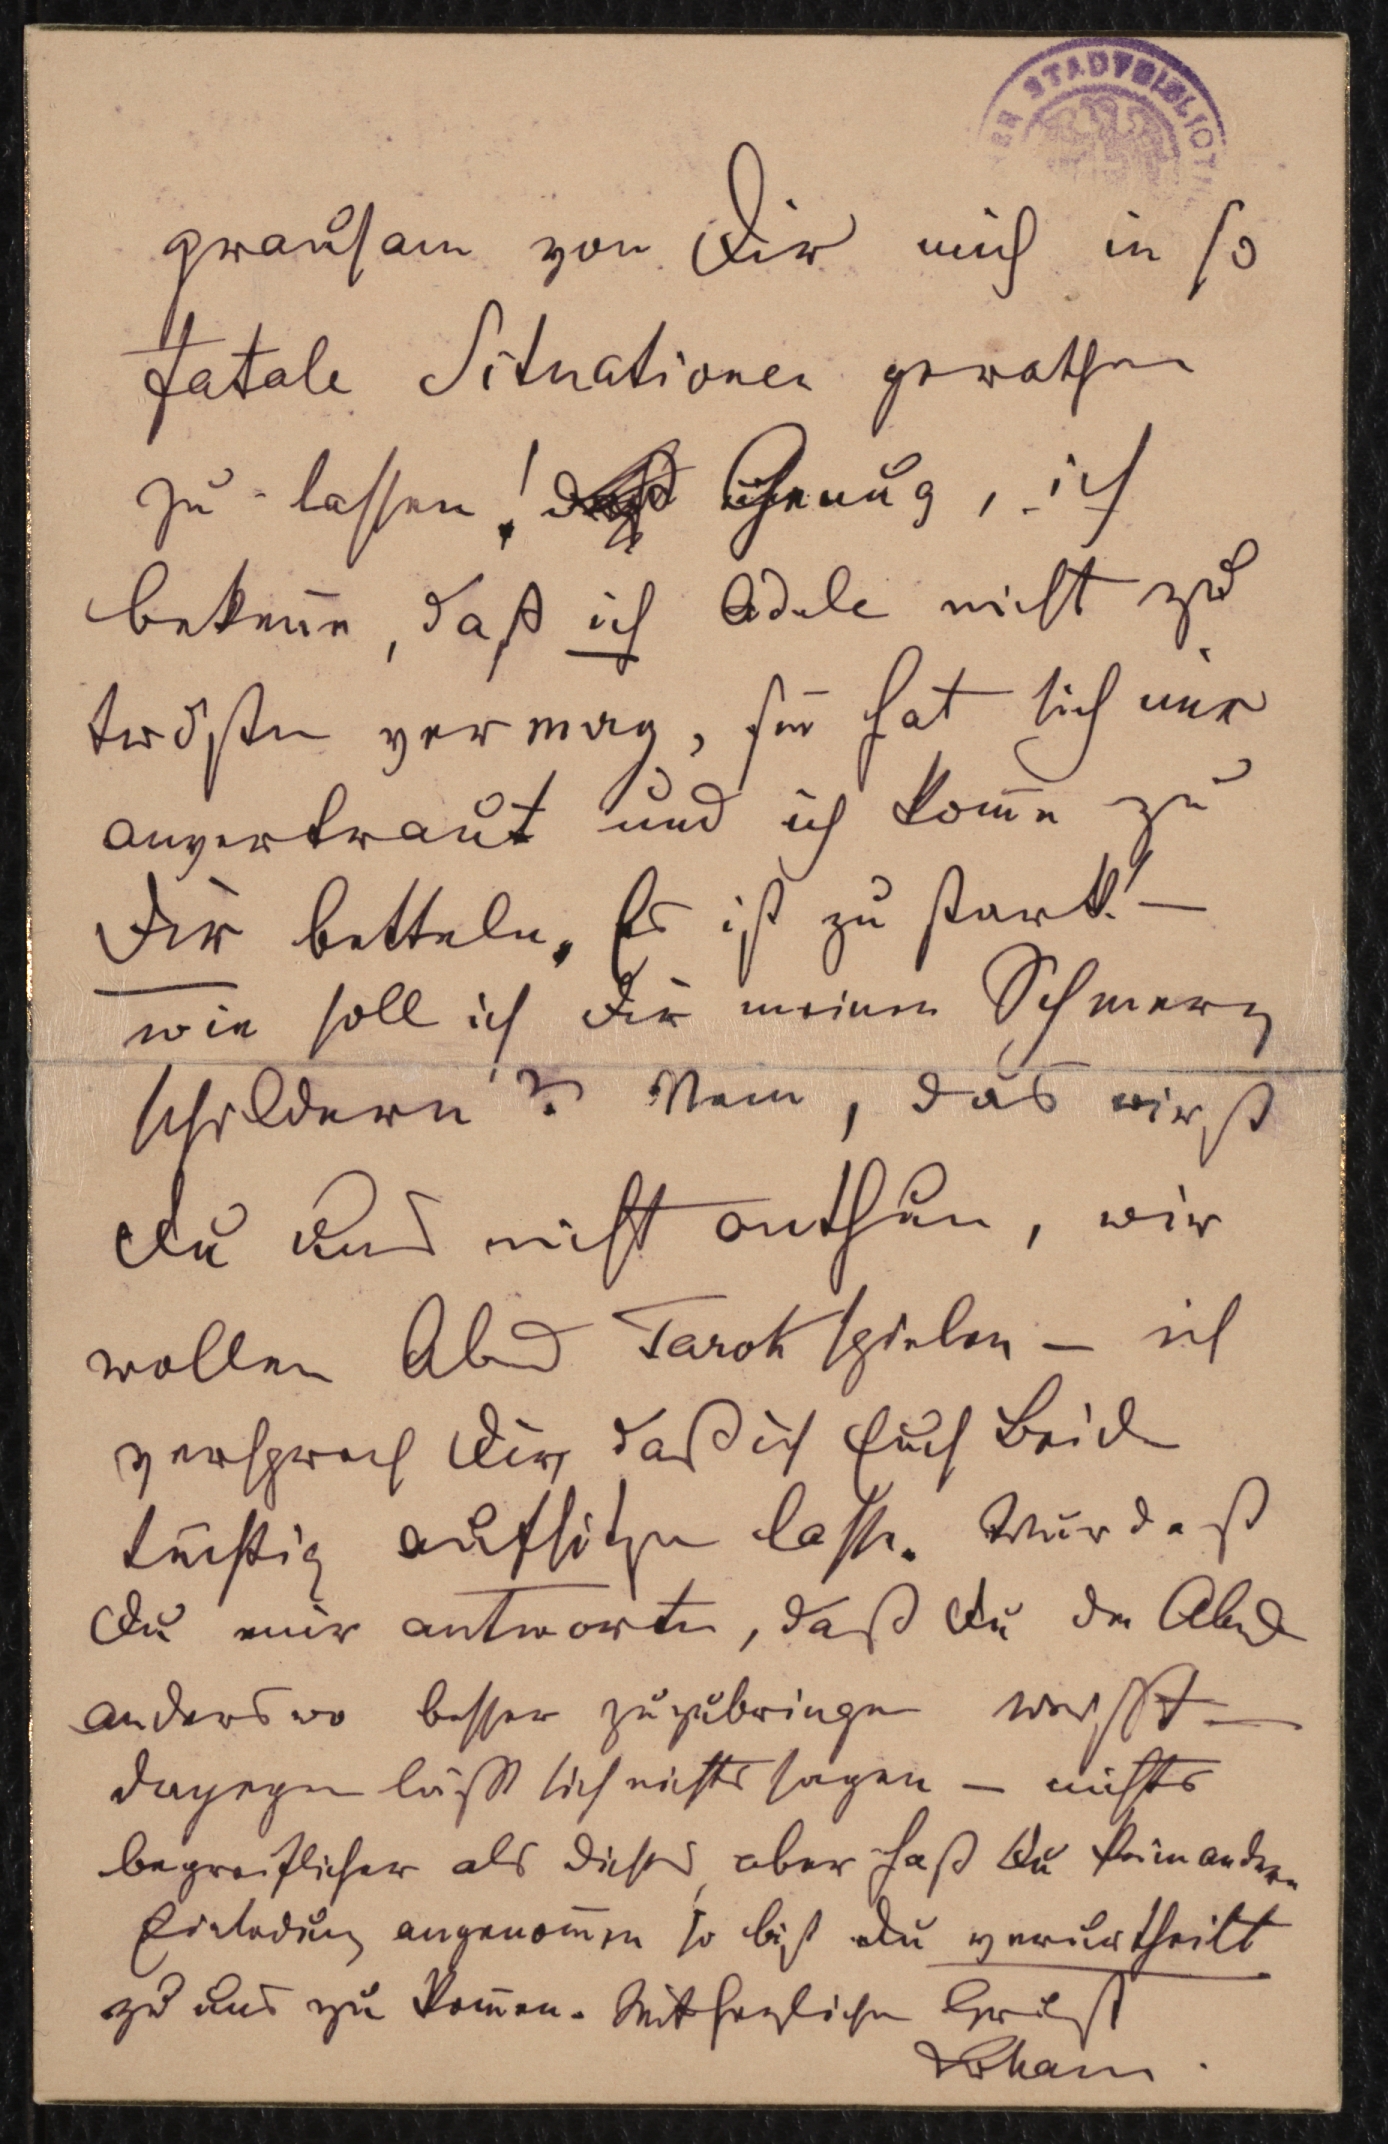 STADTBIBLIOTH
grausam von Dir mich in so
fatale Situationen gerathen
zu lassen! Genug, ich
bekeñe, daß ich Adele nicht zu
trösten vermag, sie hat sich mir
anvertraut und ich kom̄e zu
Dir betteln. Es ist zu stark! –
wie soll ich Dir meinen Schmerz
schildern? Nein, das wirst
Du uns nicht anthun, wir
wollen Abend Tarok spielen – ich
versprech Dir, daß ich Euch Beide
tüchtig aufsitzen lasse. Würdest
Du mir antworten, daß Du den Abend
anderswo besser zuzubringen weißt –
dagegen läßt sich nichts sagen – nichts
begreiflicher als dieses, aber hast Du keine andere
Einladung angenom̄en so bist Du verurtheilt
zu uns zu kom̄en. Mit herzlichen Gruß
Johann.